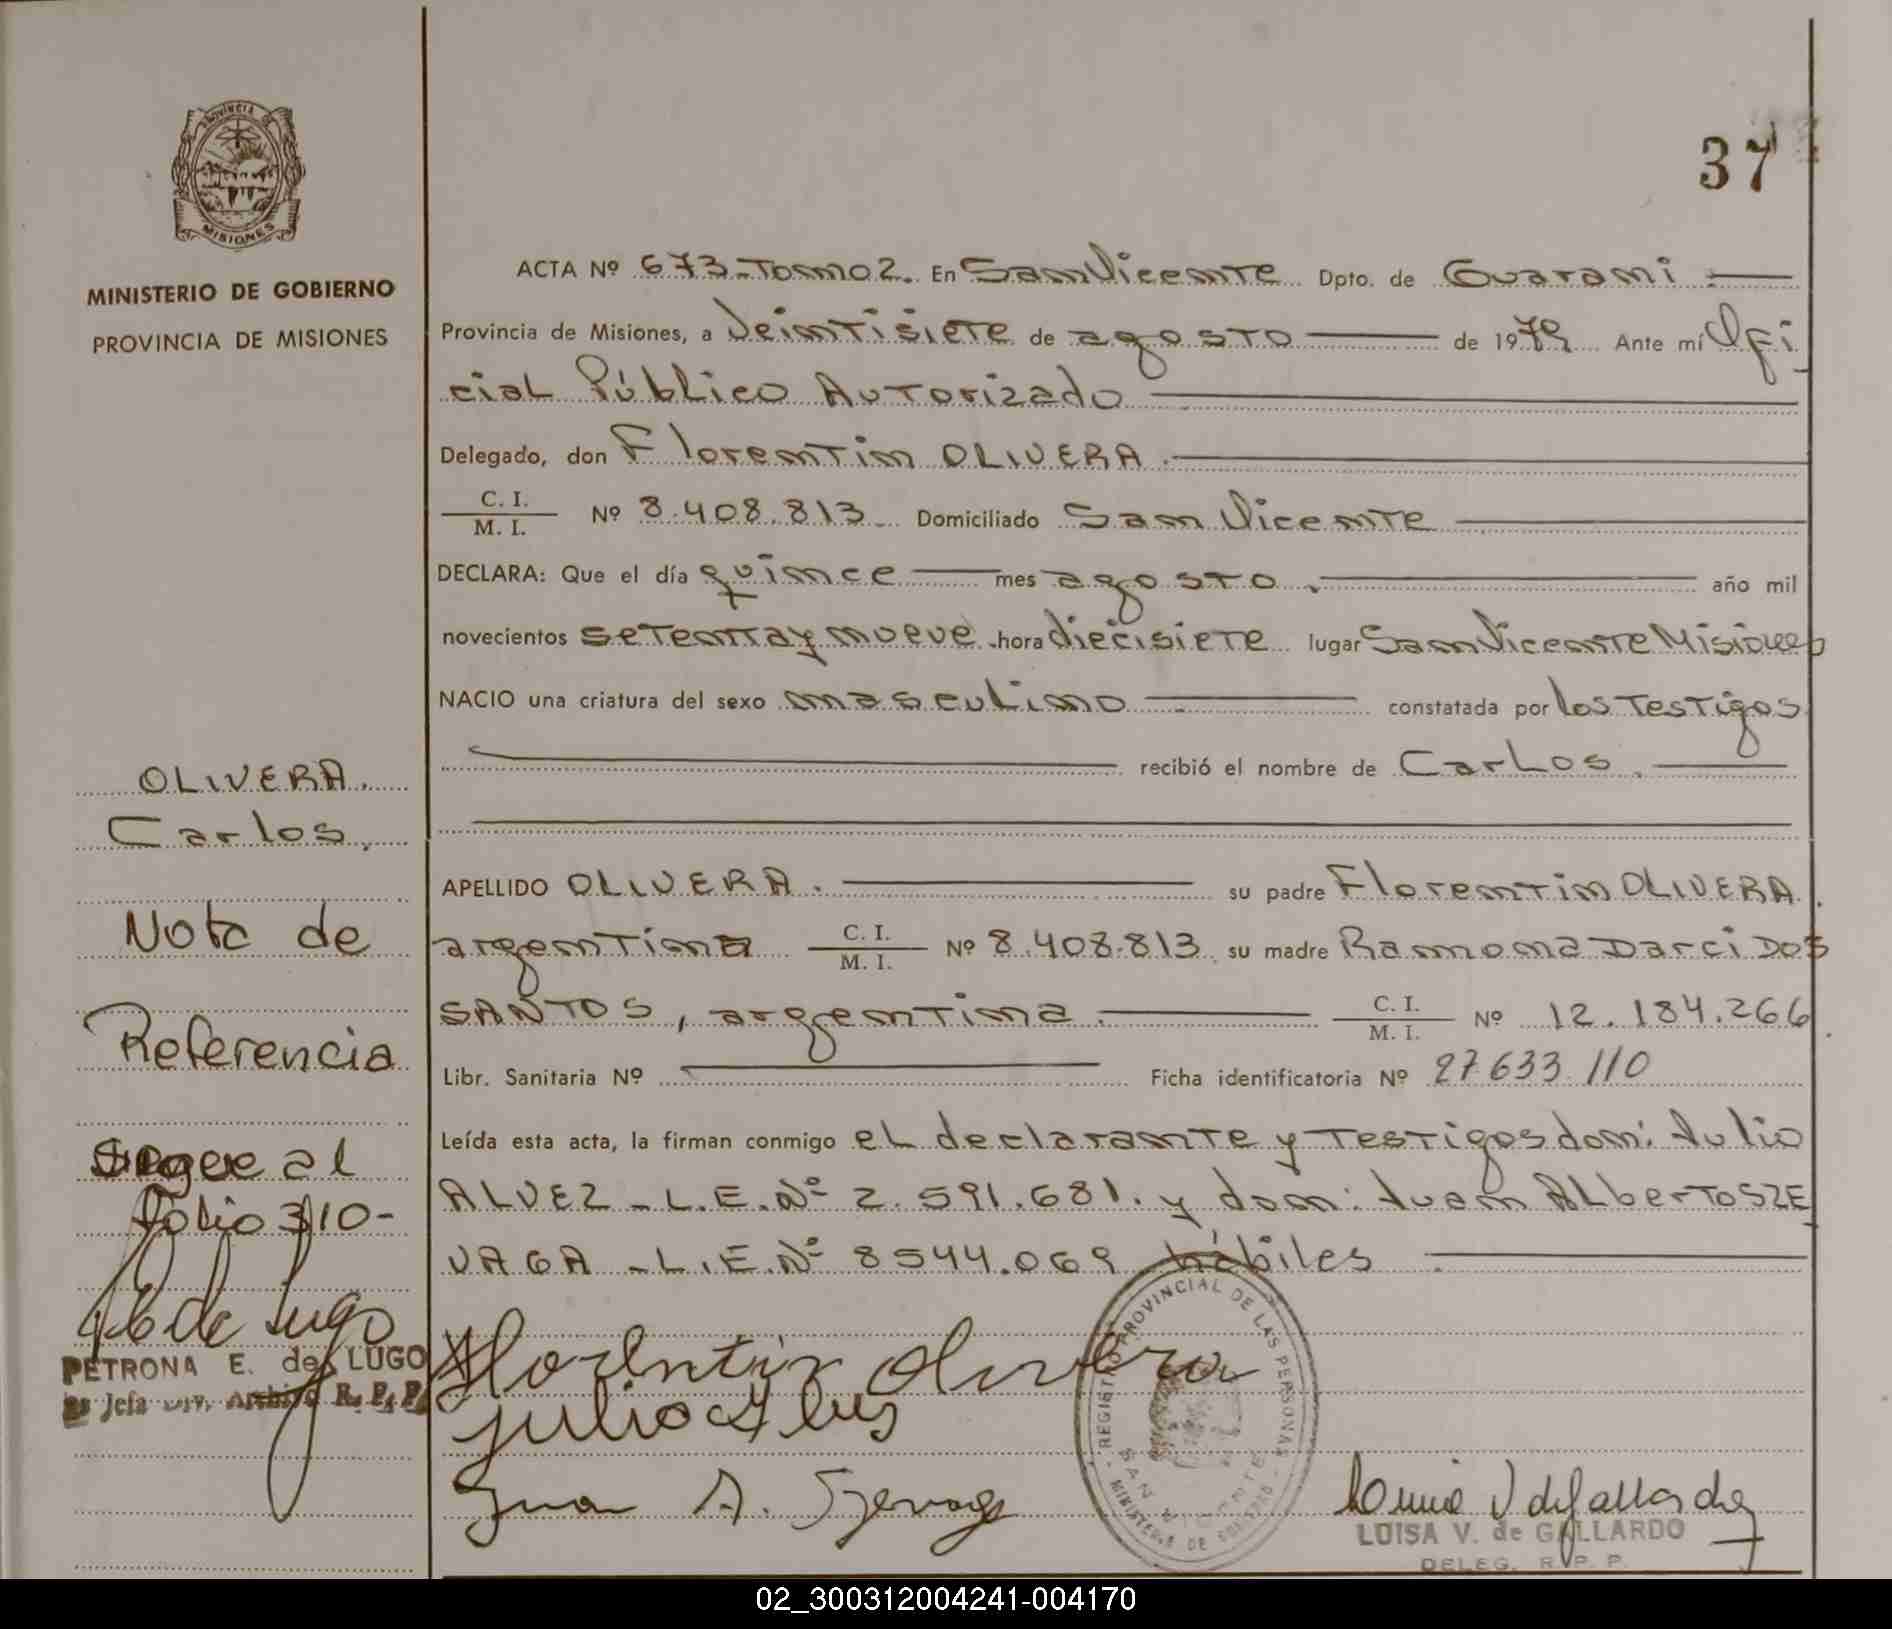 PROVINCIA DE
MISIONES
MINISTERIO DE GOBIERNO
PROVINCIA DE MISIONES
37
ACTA Nº 673-Tomo 2. En San Vicente Dpto. de Guarani
Provincia de Misiones, a Veintisiete de agosto de 1979 Ante mí Ofi
cial Público Autorizado
Delegado, don Florentin OLIVERA.
C. I.
M. I. Nº 8.408.813 Domiciliado San Vicente
DECLARA: Que el día quince mes agosto. año mil
novecientos setenta y nueve hora diecisiete lugar San Vicente Misiones
NACIO una criatura del sexo masculino constatada por los Testigos
recibió el nombre de Carlos.
APELLIDO OLIVERA. su padre Florentin OLIVERA.
argentino C. I.
M. I. Nº 8.408.813 su madre Ramona Darci DOS
SANTOS, argentina. C. I.
M. I. Nº 12.184.266
Libr. Sanitaria Nº Ficha identificatoria Nº 27633110
Leída esta acta, la firman conmigo el declarante y Testigos don: Julio
ALVEZ - L.E. Nº 2.591.681. y don: Juan Alberto SZE
VAGA - L.E. Nº 8544.069 hábiles
Florentin Olivera
Julio
Juan A. Szevaga
REGISTRO PROVINCIAL DE LAS PERSONAS
SAN VICENTE
MINISTERIO DE GOBIERNO
Luisa V de Gallardo
LUISA V. de GALLARDO
DELEG. R. P. P.
OLIVERA.
Carlos,
Nota de
Referencia
Sigue al
folio 310-
de Lugo
PETRONA E. de LUGO
Jefa Div. Archivo R. P. P.
02_300312004241-004170